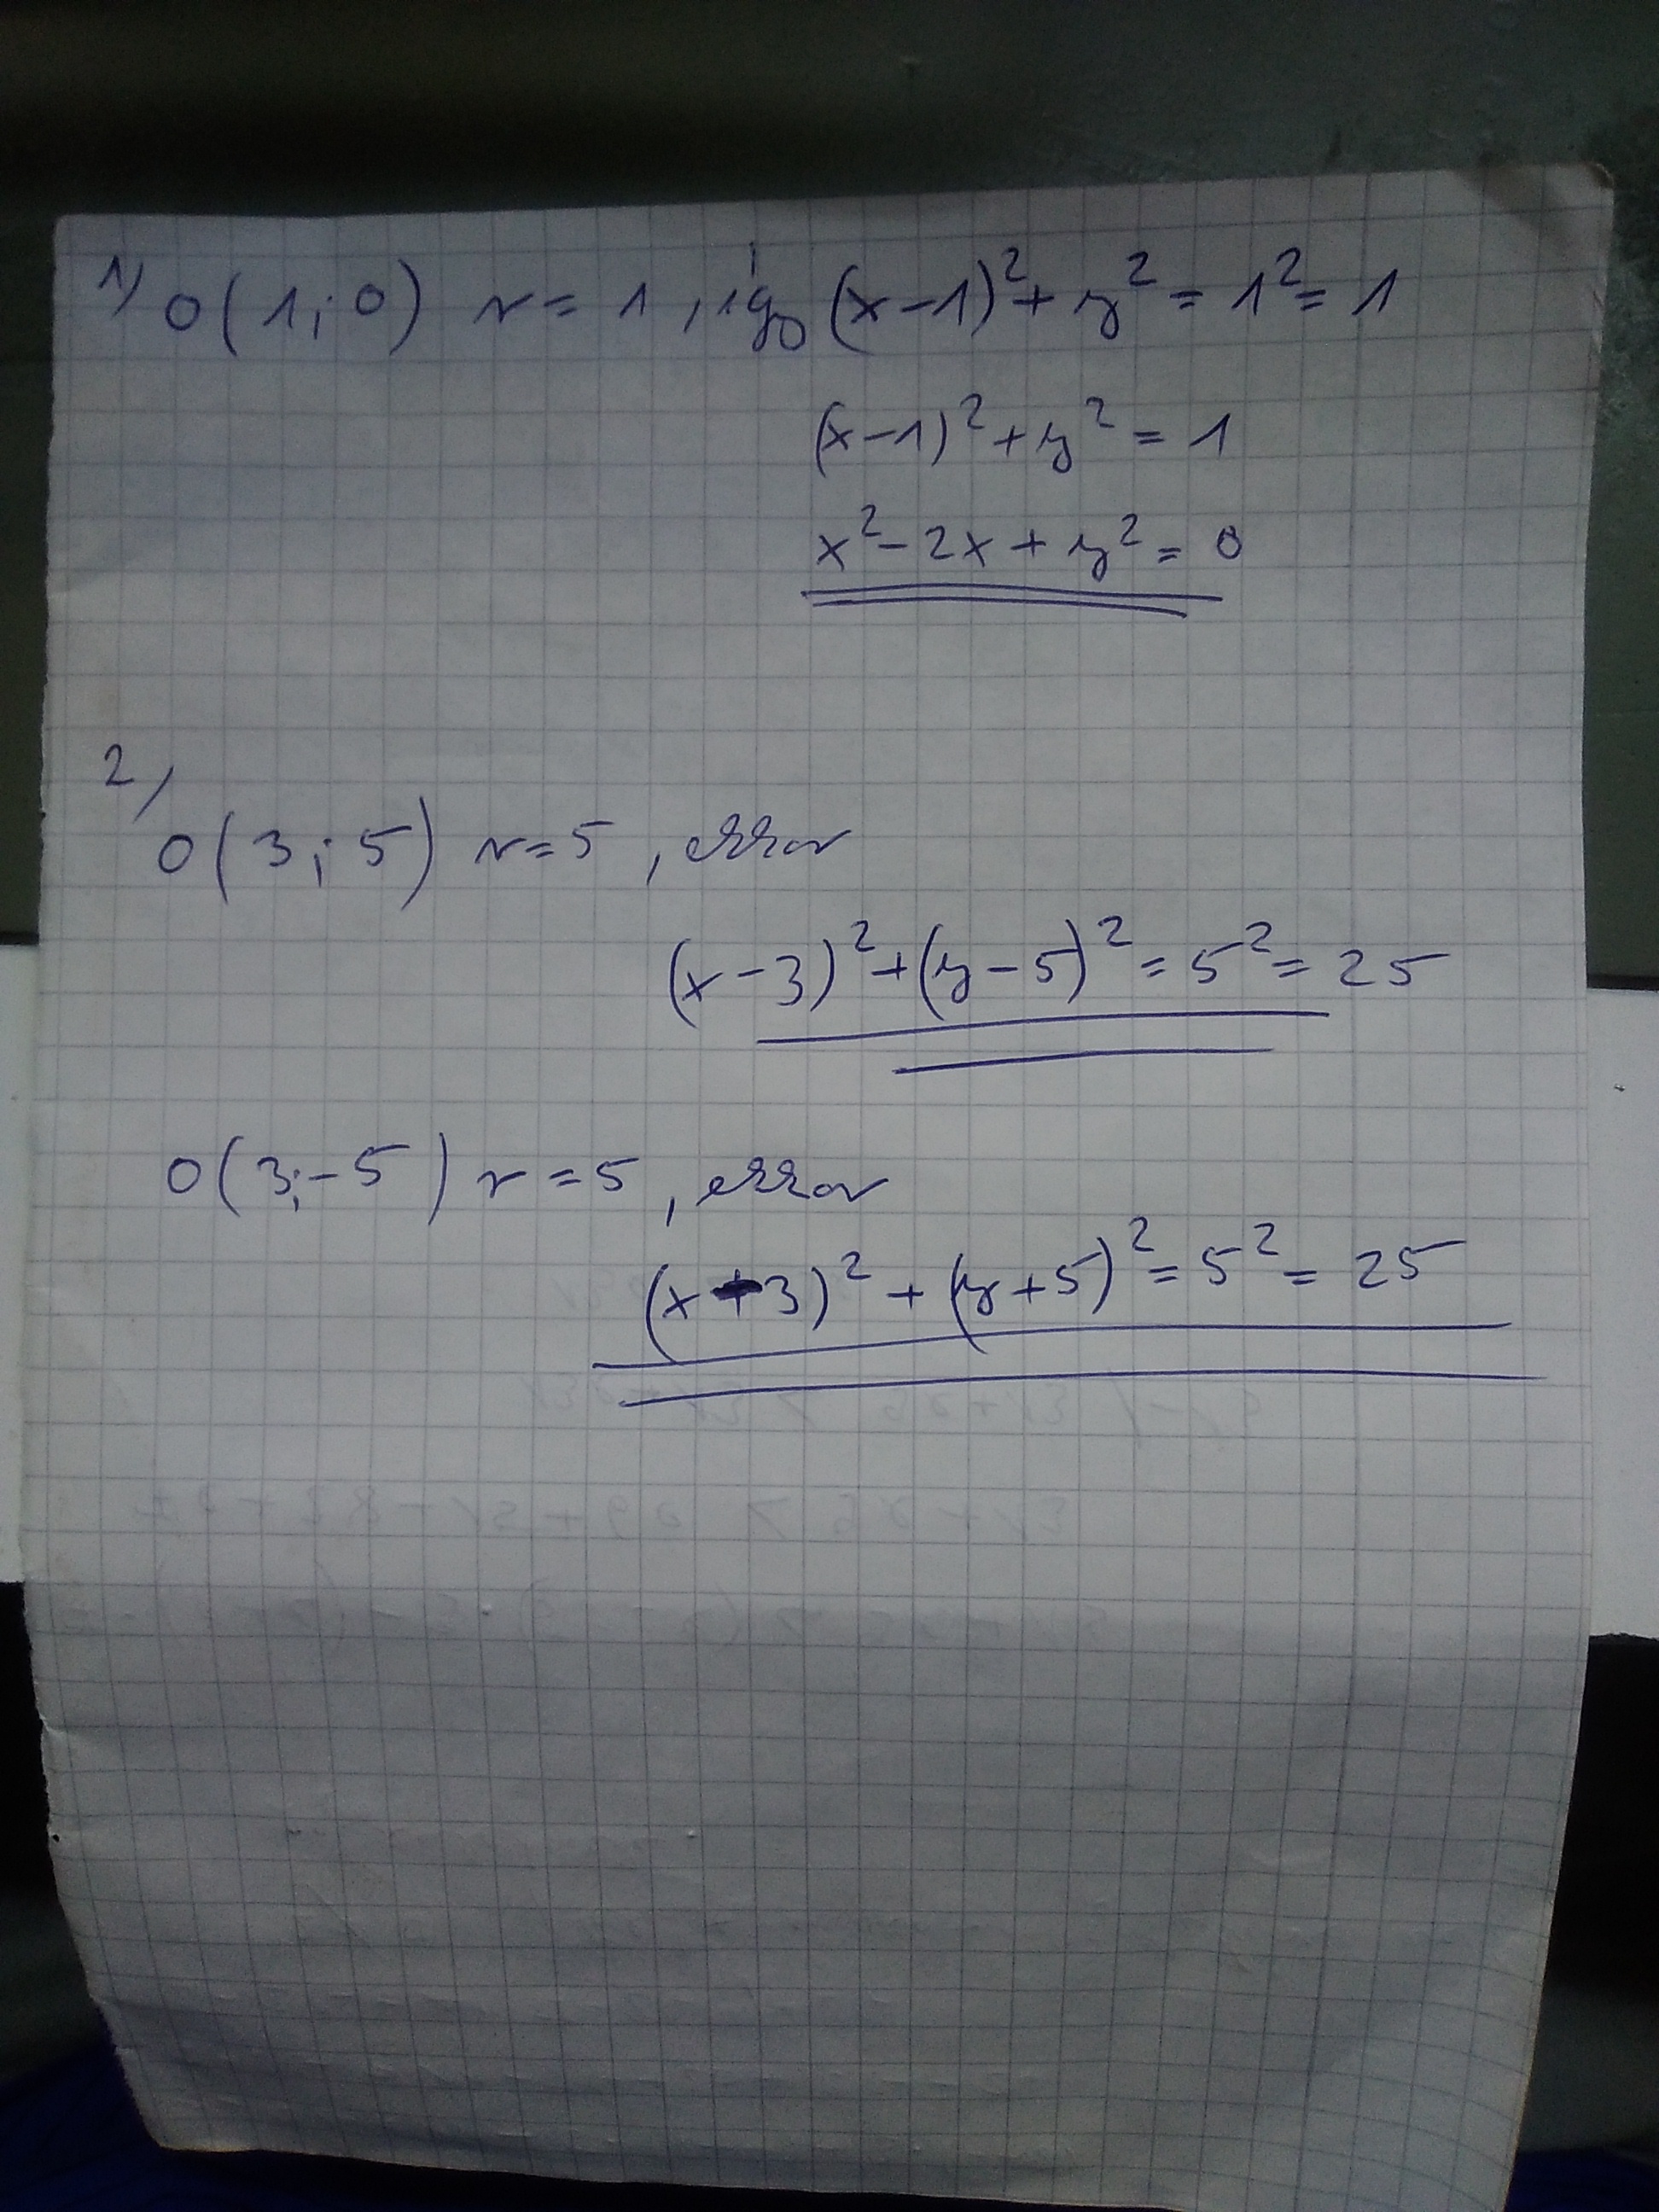 1) O(1;0) r = 1, így (x-1)² + y² = 1² = 1
(x-1)² + y² = 1
x² - 2x + y² = 0
2,
O(3;5) r=5, ekkor
(x-3)² + (y-5)² = 5² = 25
O(3;-5) r=5, ekkor
(x+3)² + (y+5)² = 5² = 25